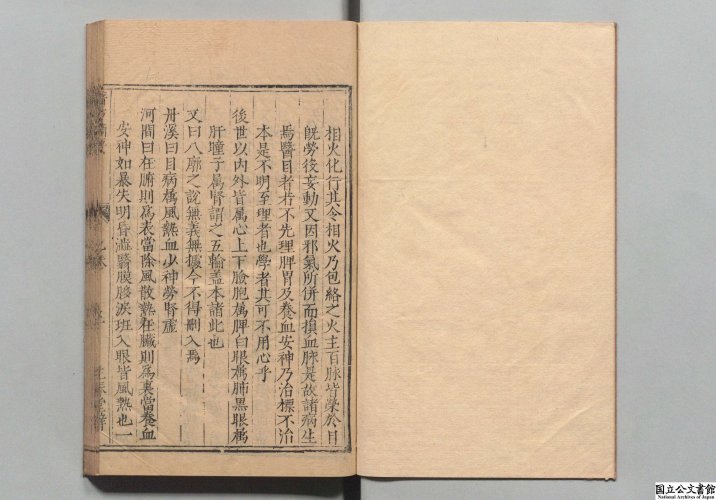 相火化行其令相火乃包絡之火主百脉皆榮於目
既勞役妄動又因邪氣所併而損血脉是故諸病生
焉醫目者若不先理脾胃及養血安神乃治標不治
本是不明至理者也學者其可不用心乎
後世以内外眥屬心上下瞼胞屬脾白眼屬肺黒眼屬
肝瞳子屬腎謂之五輪盖本諸此也
又曰八廓之說無義無據今不得刪入焉
丹溪曰目病屬風熱血少神勞腎虛
河間曰在腑則為表當除風散熱在臟則為裏當養血
安神如暴失明昏澁翳膜眵淚斑入眼皆風熱也一
国立公文書館
National Archives of Japan